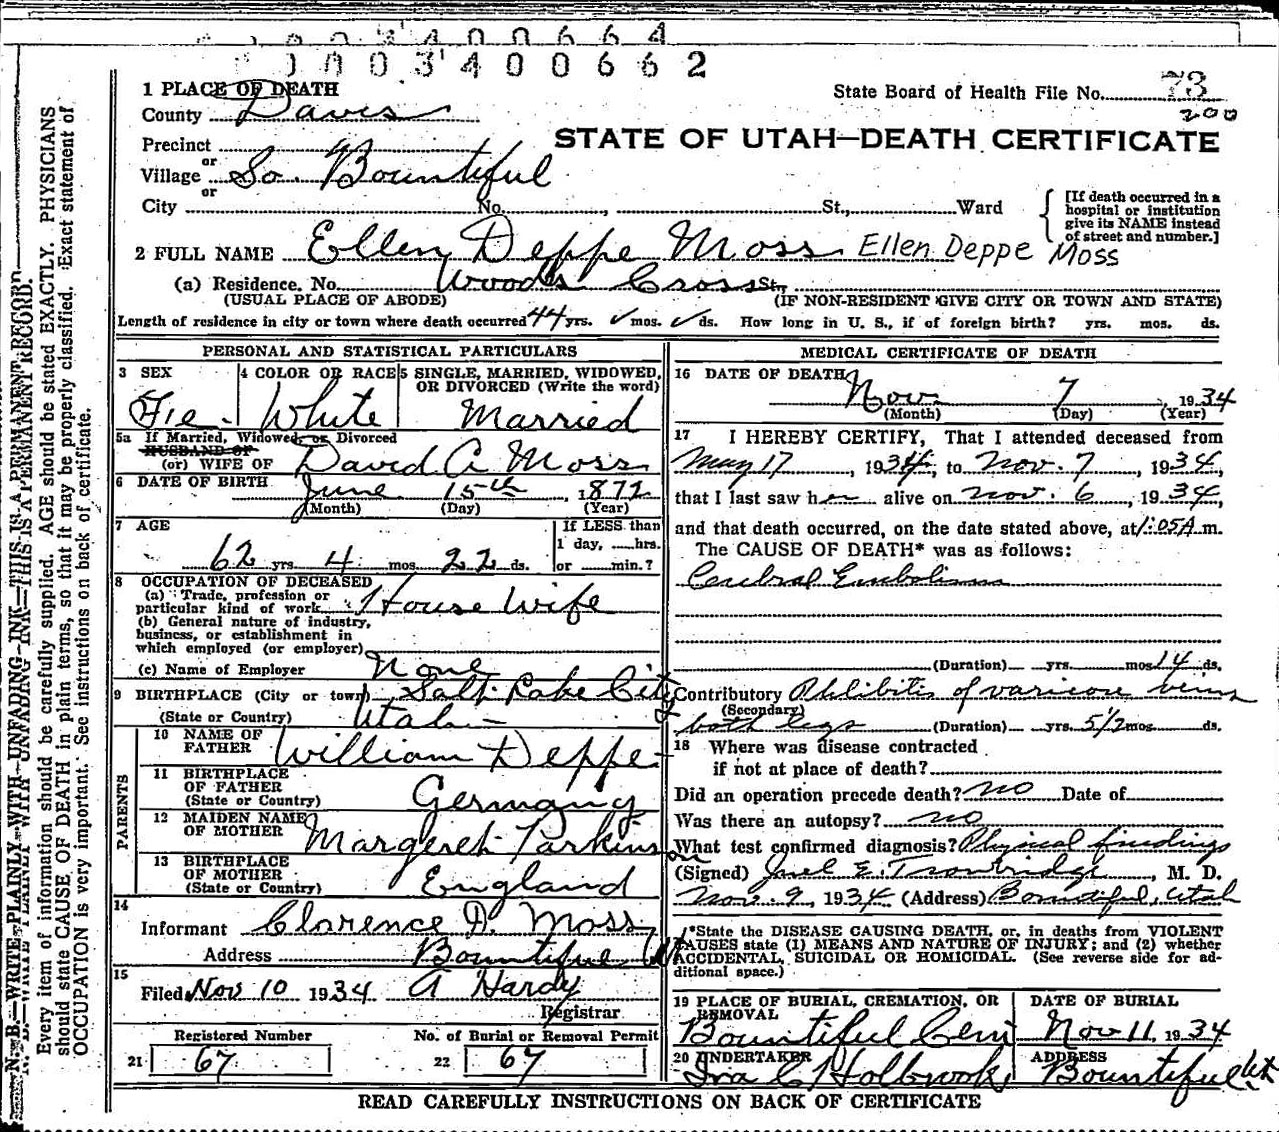 0003400664
0003400662
1 PLACE OF DEATH
County Davis
State Board of Health File No. 73
200
Precinct
STATE OF UTAH—DEATH CERTIFICATE
or
Village So. Bountiful
or
City No. , St., Ward
[If death occurred in a hospital or institution give its NAME instead of street and number.]
2 FULL NAME Ellen Deppe Moss Ellen Deppe Moss
(a) Residence. No. Woods Cross St.,
(USUAL PLACE OF ABODE) (IF NON-RESIDENT GIVE CITY OR TOWN AND STATE)
Length of residence in city or town where death occurred 44 yrs. ✓ mos. ✓ ds. How long in U. S., if of foreign birth? yrs. mos. ds.
PERSONAL AND STATISTICAL PARTICULARS
3 SEX
Fe.
4 COLOR OR RACE
White
5 SINGLE, MARRIED, WIDOWED, OR DIVORCED (Write the word)
Married
5a If Married, Widowed, or Divorced
HUSBAND OF
(or) WIFE OF David A Moss
6 DATE OF BIRTH June 15th, 1872
(Month) (Day) (Year)
7 AGE
62 yrs. 4 mos. 22 ds.
If LESS than
1 day, hrs.
or min.?
8 OCCUPATION OF DECEASED
(a) Trade, profession or
particular kind of work House Wife
(b) General nature of industry,
business, or establishment in
which employed (or employer)
(c) Name of Employer None
9 BIRTHPLACE (City or town) Salt Lake City
(State or Country) Utah
PARENTS
10 NAME OF
FATHER William Deppe
11 BIRTHPLACE
OF FATHER
(State or Country) Germany
12 MAIDEN NAME
OF MOTHER Margeret Parkinson
13 BIRTHPLACE
OF MOTHER
(State or Country) England
14
Informant Clarence D. Moss
Address Bountiful U
15
Filed Nov 10 1934 A Hardy
Registrar
Registered Number No. of Burial or Removal Permit
21 67 22 67
MEDICAL CERTIFICATE OF DEATH
16 DATE OF DEATH
Nov 7, 1934
(Month) (Day) (Year)
17 I HEREBY CERTIFY, That I attended deceased from
May 17, 1934, to Nov. 7, 1934,
that I last saw her alive on Nov. 6, 1934,
and that death occurred, on the date stated above, at 1:05A m.
The CAUSE OF DEATH* was as follows:
Cerebral Embolism
(Duration) yrs. mos 14 ds.
Contributory Phlibitis of varicose veins
(Secondary)
both legs (Duration) yrs. 5 1/2 mos ds.
18 Where was disease contracted
if not at place of death?
Did an operation precede death? no Date of
Was there an autopsy? no
What test confirmed diagnosis? Physical findings
(Signed) Joel E. Trowbridge, M. D.
Nov. 9, 1934 (Address) Bountiful, Utah
*State the DISEASE CAUSING DEATH, or, in deaths from VIOLENT
CAUSES state (1) MEANS AND NATURE OF INJURY; and (2) whether
ACCIDENTAL, SUICIDAL OR HOMICIDAL. (See reverse side for ad-
ditional space.)
19 PLACE OF BURIAL, CREMATION, OR REMOVAL
Bountiful Cem
DATE OF BURIAL
Nov 11, 1934
20 UNDERTAKER
Ira C Holbrook
ADDRESS
Bountiful Ut
READ CAREFULLY INSTRUCTIONS ON BACK OF CERTIFICATE
N. B.—WRITE PLAINLY—WITH UNFADING INK—THIS IS A PERMANENT RECORD.
Every item of information should be carefully supplied. AGE should be stated EXACTLY. PHYSICIANS
should state CAUSE OF DEATH in plain terms, so that it may be properly classified. Exact statement of
OCCUPATION is very important. See instructions on back of certificate.